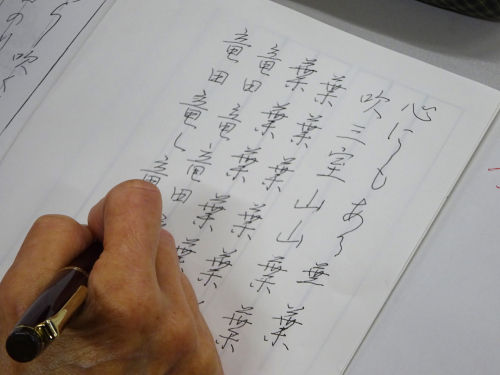 心にもあら無葉
吹三室山山葉葉
葉葉葉葉葉
葉葉葉葉葉
竜田竜竜田
竜田竜し竜
吹く